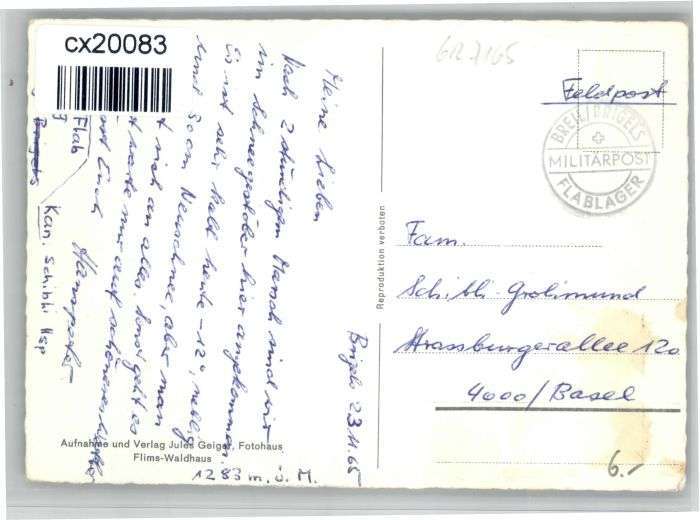 cx20083
GR 7165
Feldpost
BREIL/BRIGELS
MILITÄRPOST
FLABLAGER
Fam.
Schibli-Grolimund
Strassburgerallee 120
4000/Basel
6.-
Reproduktion verboten
Brigels 23.11.65
Meine Lieben
Nach 2 stündigem Marsch sind wir
im Schneegestöber hier angekommen.
Es ist sehr kalt heute -12°, neblig
und 50 cm Neuschnee, aber man
t sich an alles. Sonst geht es
t warte nur auf schöneres Wetter
Euch
Hanspeter
Kan. Schibli Hsp
Flab
Brigels
Aufnahme und Verlag Jules Geiger, Fotohaus
Flims-Waldhaus
1283 m. ü. M.